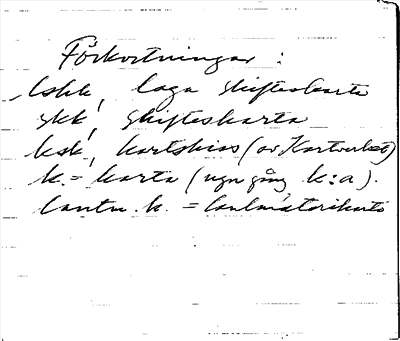 Förkortningar:
lskk, laga skifteskarta
skk, skifteskarta
ksk, kartskiss (av Kartverket)
k. = karta (ngn gång k:a).
lantm. k. = lantmäterikarta